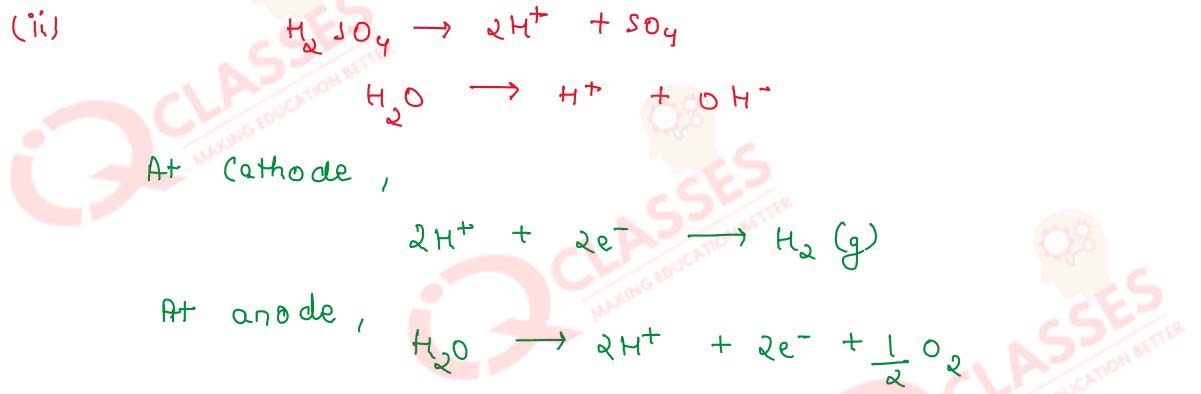 (ii) H₂SO₄ → 2H⁺ + SO₄
H₂O → H⁺ + OH⁻
At Cathode,
2H⁺ + 2e⁻ → H₂ (g)
At anode,
H₂O → 2H⁺ + 2e⁻ + 1/2 O₂
CLASSES
MAKING EDUCATION BETTER
CLASSES
MAKING EDUCATION BETTER
CLASSES
EDUCATION BETTER